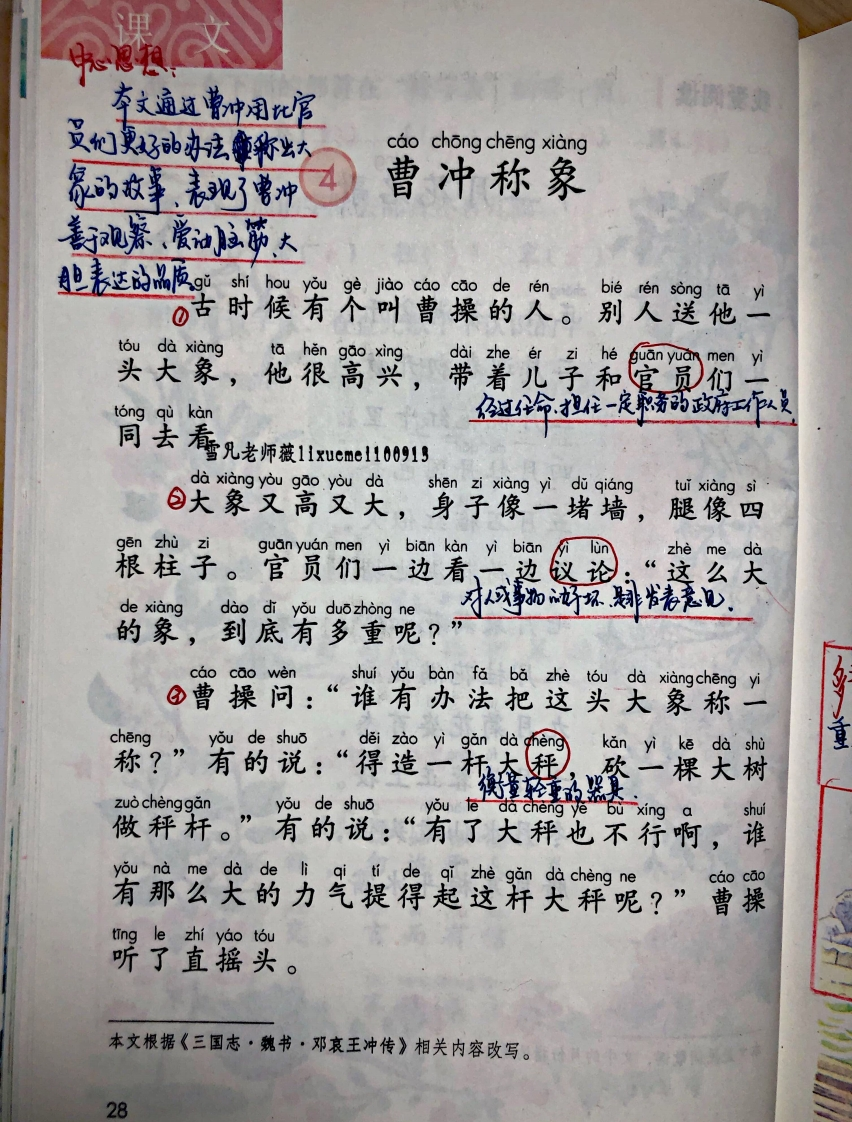 课文
中心思想：
本文通过曹冲用比官
员们更好的办法称出大
象的故事，表现了曹冲
善于观察、爱动脑筋、大
胆表达的品质。
4
cáo chōng chēng xiàng
曹冲称象
gǔ shí hou yǒu gè jiào cáo cāo de rén bié rén sòng tā yì
①古时候有个叫曹操的人。别人送他一
tóu dà xiàng tā hěn gāo xìng dài zhe ér zi hé guān yuán men yì
头大象，他很高兴，带着儿子和官员们一
经过任命，担任一定职务的政府工作人员。
tóng qù kàn
同去看
雪凡老师薇lixuemei100913
dà xiàng yòu gāo yòu dà shēn zi xiàng yì dǔ qiáng tuǐ xiàng sì
②大象又高又大，身子像一堵墙，腿像四
gēn zhù zi guān yuán men yì biān kàn yì biān yì lùn zhè me dà
根柱子。官员们一边看一边议论：“这么大
对人或事物的好坏、是非发表意见。
de xiàng dào dǐ yǒu duō zhòng ne
的象，到底有多重呢？”
cáo cāo wèn shuí yǒu bàn fǎ bǎ zhè tóu dà xiàng chēng yi
③曹操问：“谁有办法把这头大象称一
chēng yǒu de shuō děi zào yì gǎn dà chèng kǎn yì kē dà shù
称？”有的说：“得造一杆大秤，砍一棵大树
衡量轻重的器具。
zuò chèng gǎn yǒu de shuō yǒu le dà chèng yě bù xíng a shuí
做秤杆。”有的说：“有了大秤也不行啊，谁
yǒu nà me dà de lì qi tí de qǐ zhè gǎn dà chèng ne cáo cāo
有那么大的力气提得起这杆大秤呢？”曹操
tīng le zhí yáo tóu
听了直摇头。
本文根据《三国志·魏书·邓哀王冲传》相关内容改写。
28
重